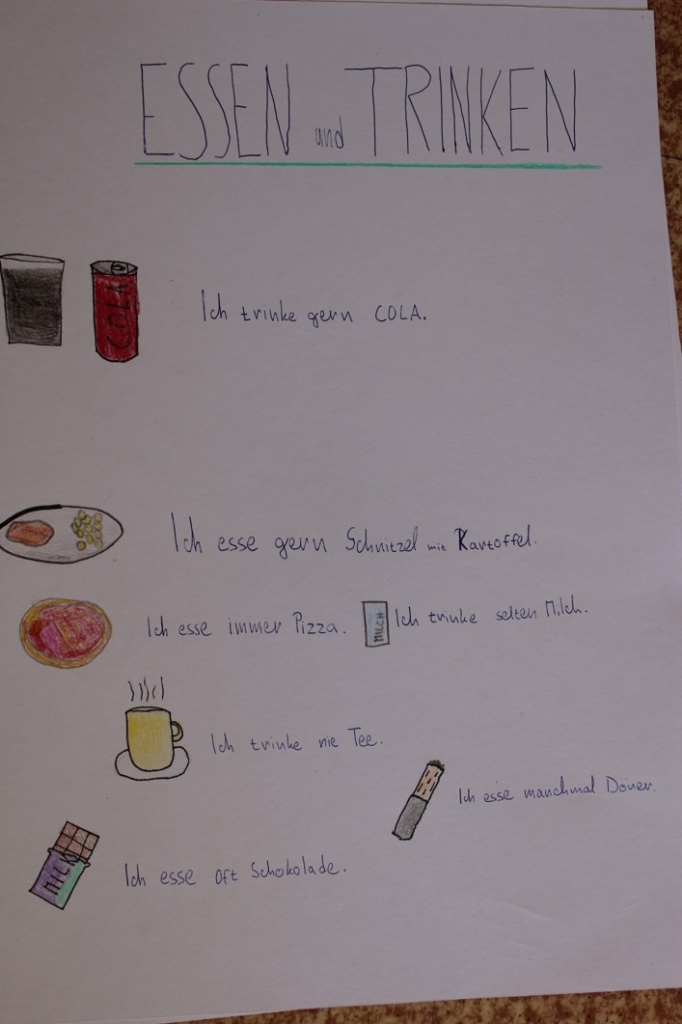 ESSEN und TRINKEN
COLA
Ich trinke gern COLA.
Ich esse gern Schnitzel mit Kartoffel.
Ich esse immer Pizza.
MILCH
Ich trinke selten Milch.
Ich trinke nie Tee.
Ich esse manchmal Döner.
MILCH
Ich esse oft Schokolade.